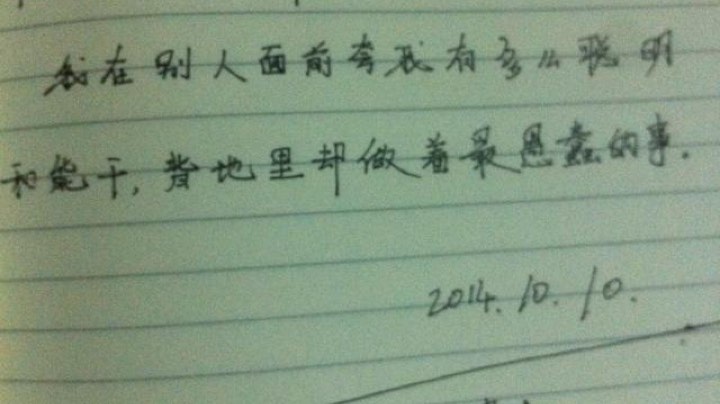 我在别人面前夸我有多么聪明
和能干，背地里却做着最愚蠢的事.
2014.10.10.